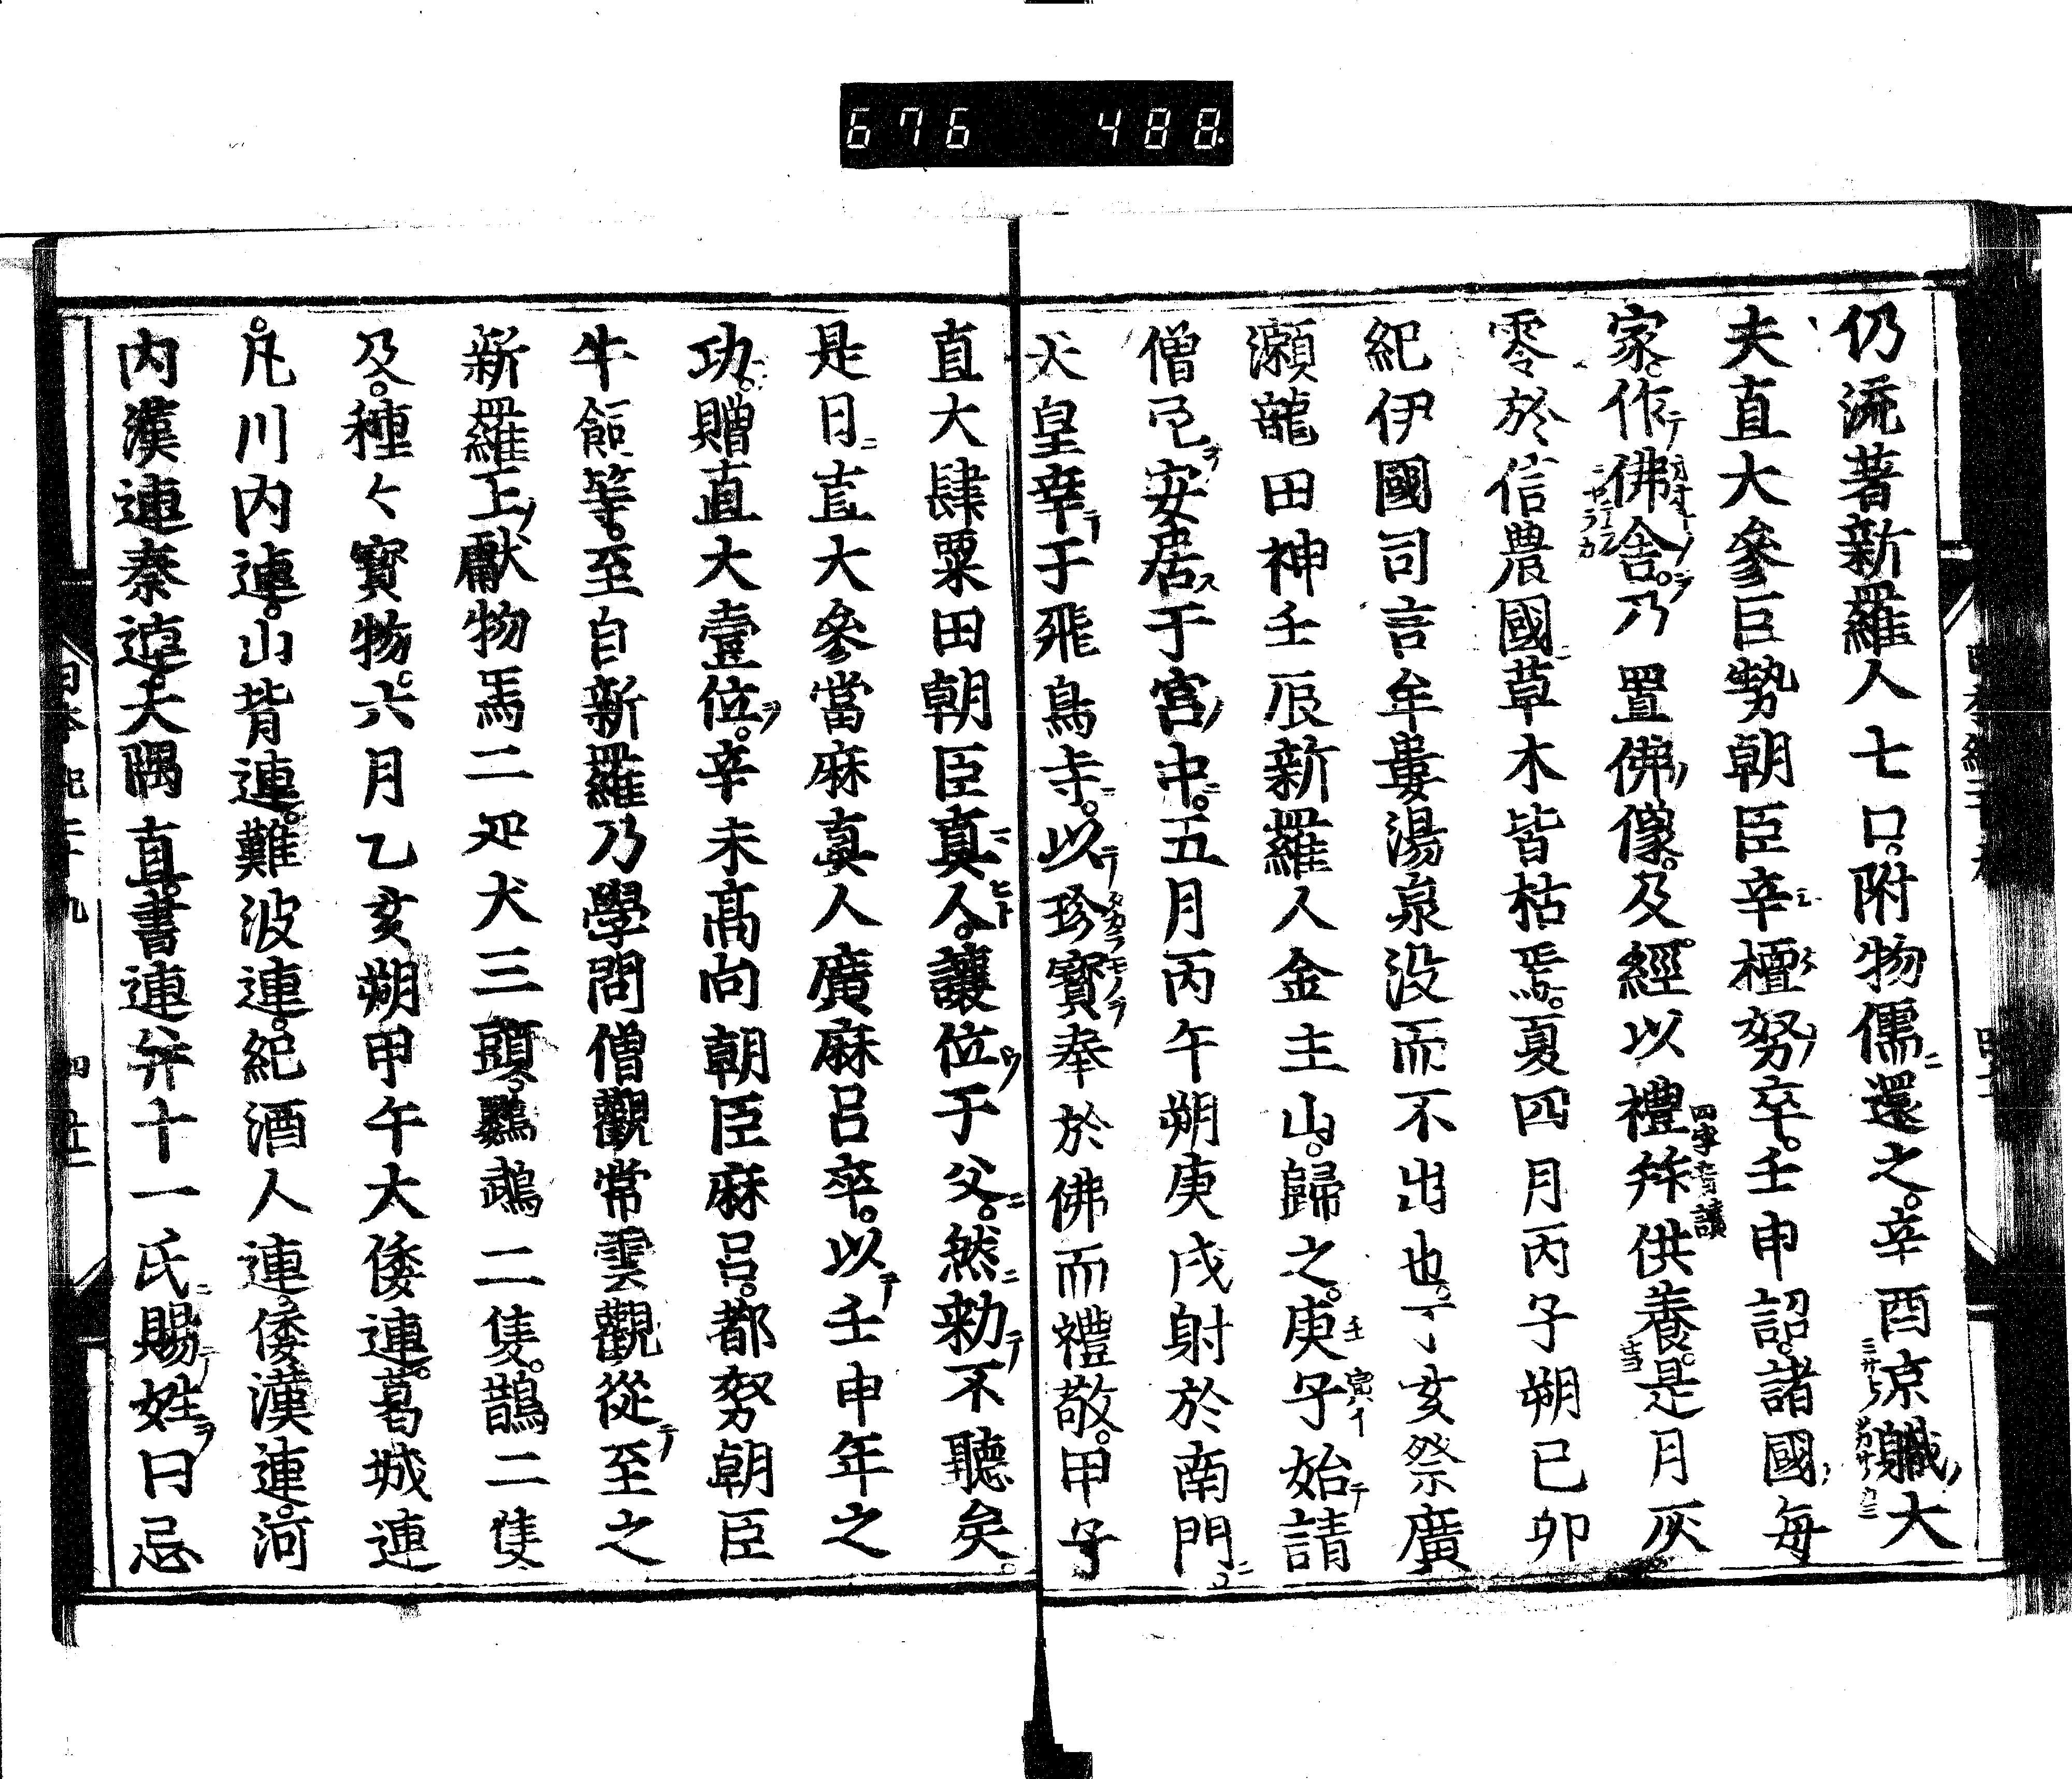 676 488
仍流著新羅人七口附物儒還之辛酉京職大
夫直大參巨勢朝臣辛檀努卒壬申詔諸國每
家作佛舍乃置佛像及經以禮拜供養是月灰
零於信農國草木皆枯焉夏四月丙子朔己卯
紀伊國司言牟婁湯泉没而不出也丁亥祭廣
瀬龍田神壬辰新羅人金主山歸之庚子始請
僧尼安居于宮中五月丙午朔庚戌射於南門
天皇幸于飛鳥寺以珍寶奉於佛而禮敬甲子
直大肆粟田朝臣真人讓位于父然勅不聽矣
是日直大參當麻真人廣麻呂卒以壬申年之
功贈直大壹位辛未高向朝臣麻呂都努朝臣
牛飼等至自新羅乃學問僧觀常雲觀從至之
新羅王獻物馬二疋犬三頭鸚鵡二隻鵲二隻
及種々寶物六月乙亥朔甲午大倭連葛城連
凡川内連山背連難波連紀酒人連倭漢連河
内漢連秦連大隅直書連并十一氏賜姓曰忌